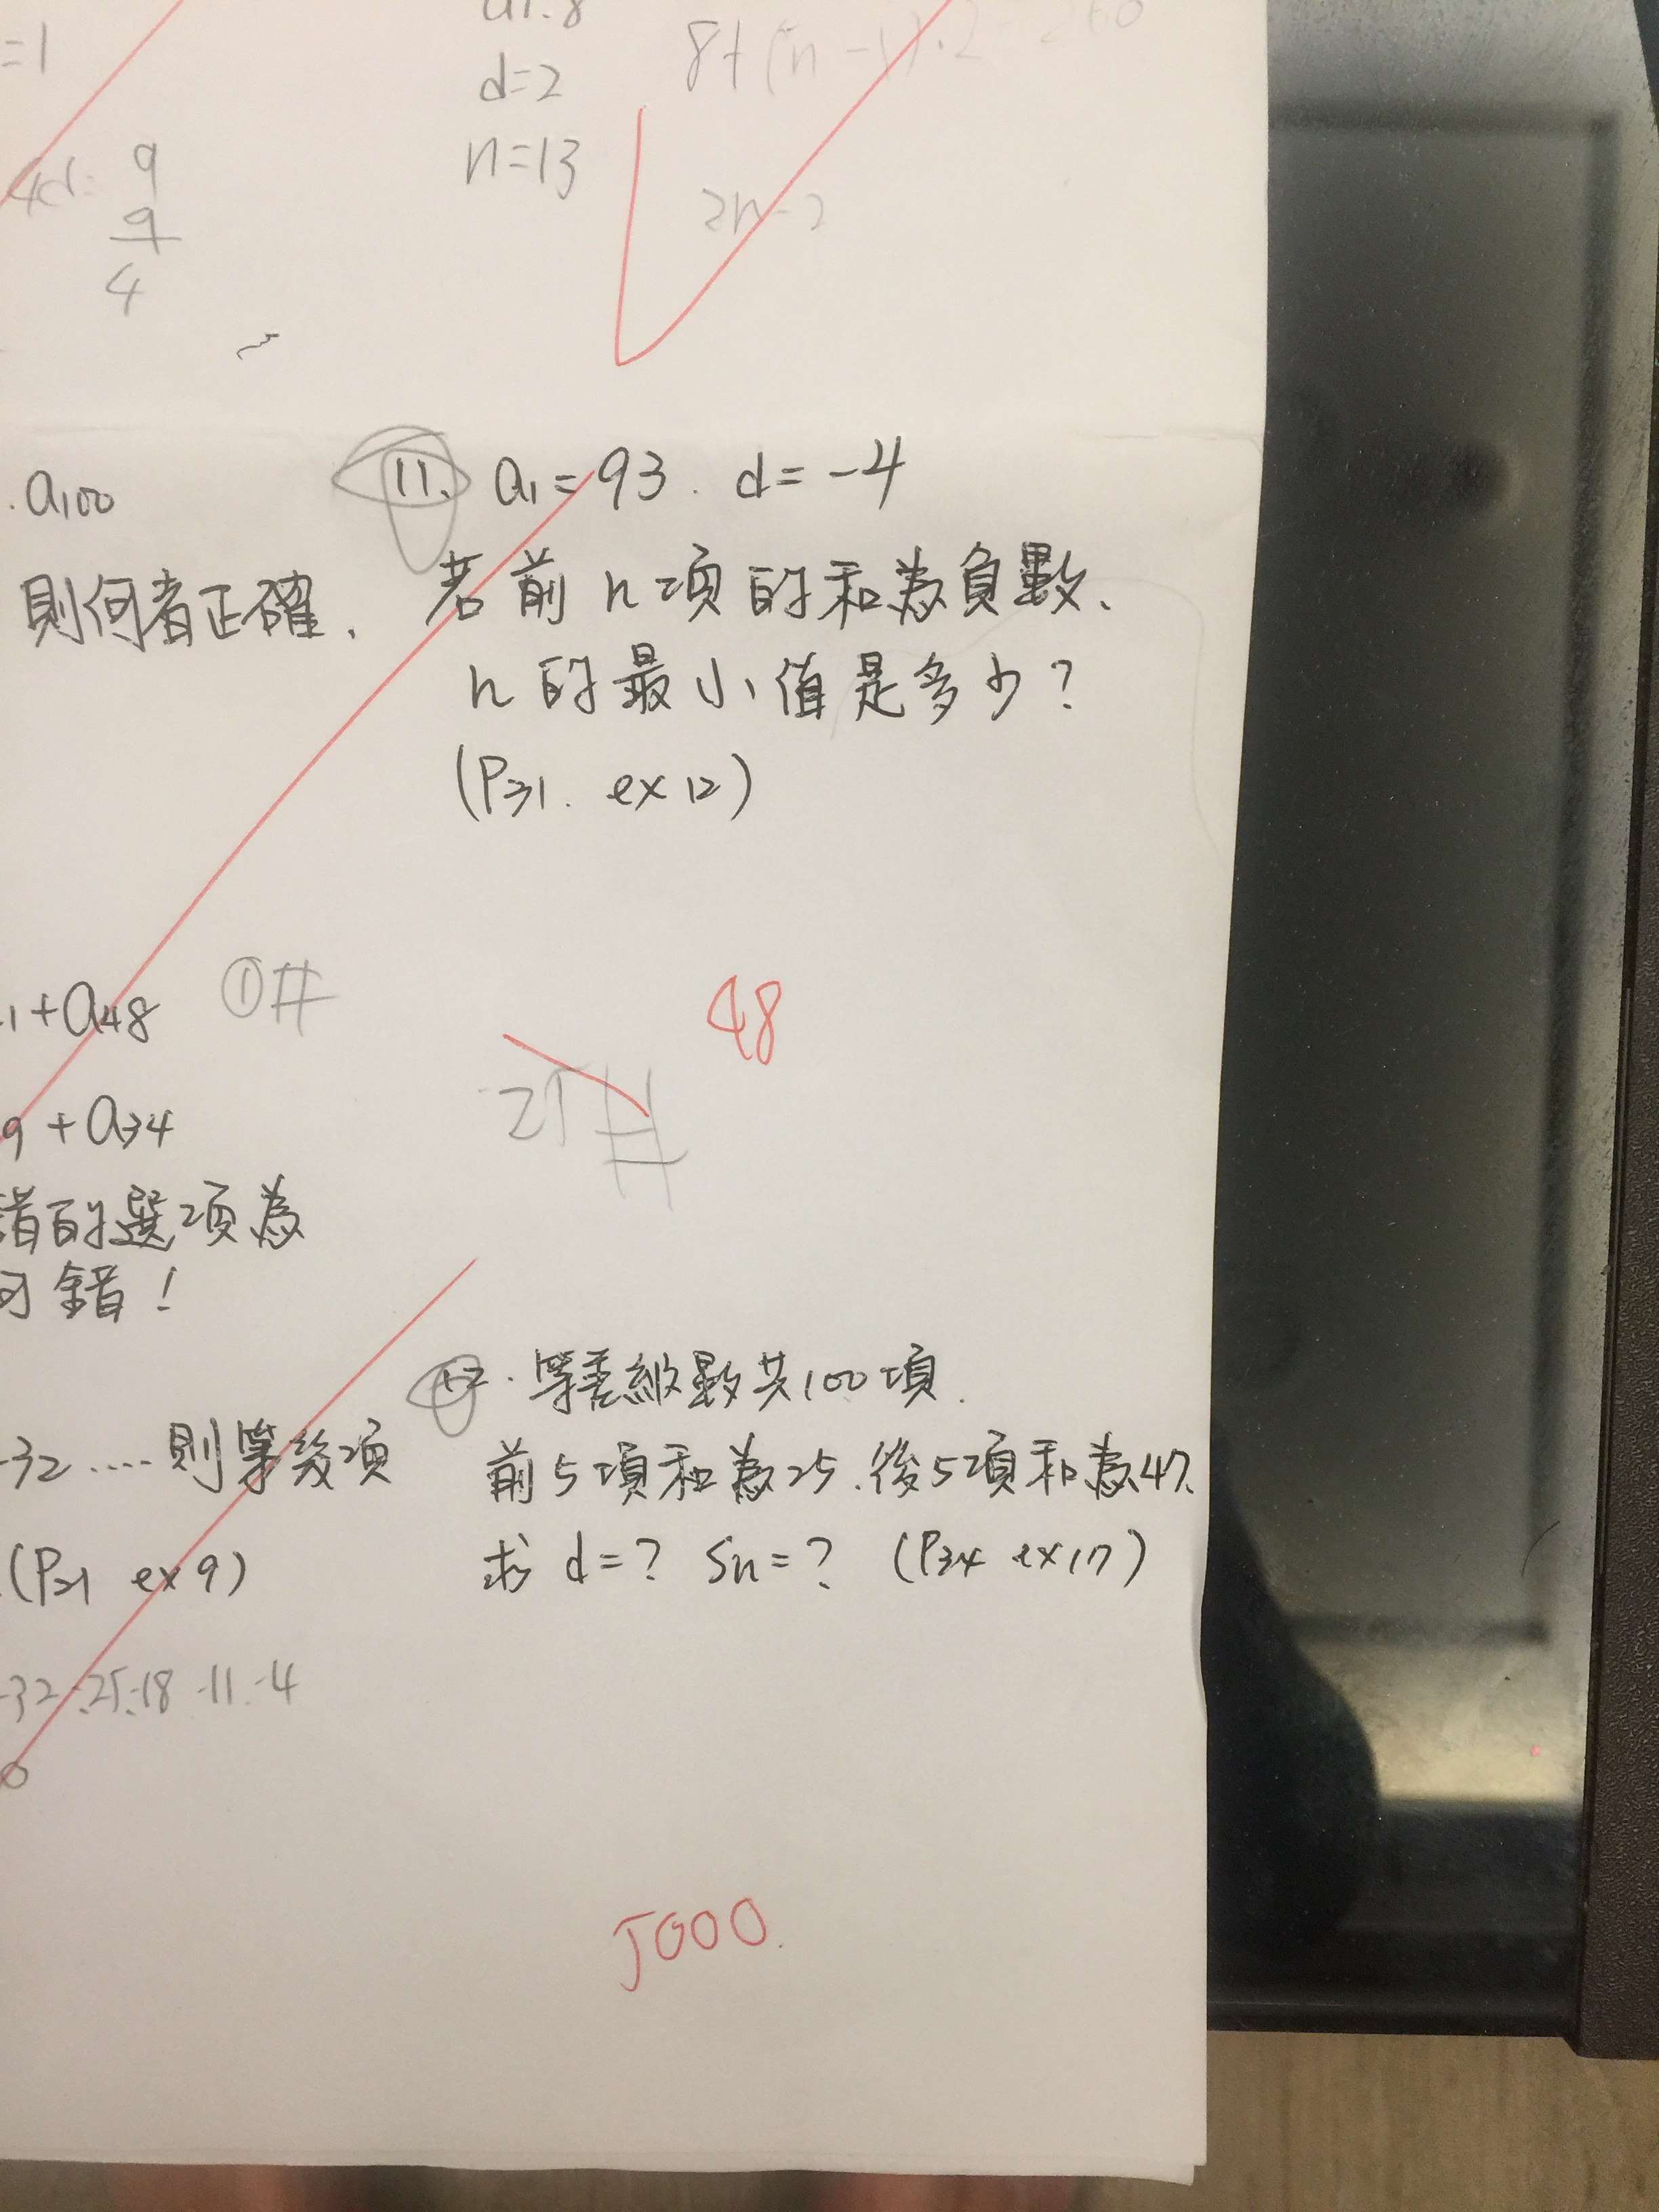 =1
a1.8
d=2
n=13
8+(n-1).2 260
2n-2
9
9
4
.a100
則何者正確.
11. a1=93. d=-4
若前n項的和為負數、
n的最小值是多少?
(P31. ex12)
1+a48
①#
9+a34
錯的選項為
可錯!
48
25#
-32....則第幾項
(P31 ex9)
-32.-25.-18 -11.-4
12.等差級數共100項.
前5項和為25.後5項和為47.
求 d=? Sn=? (P34 ex17)
5000.